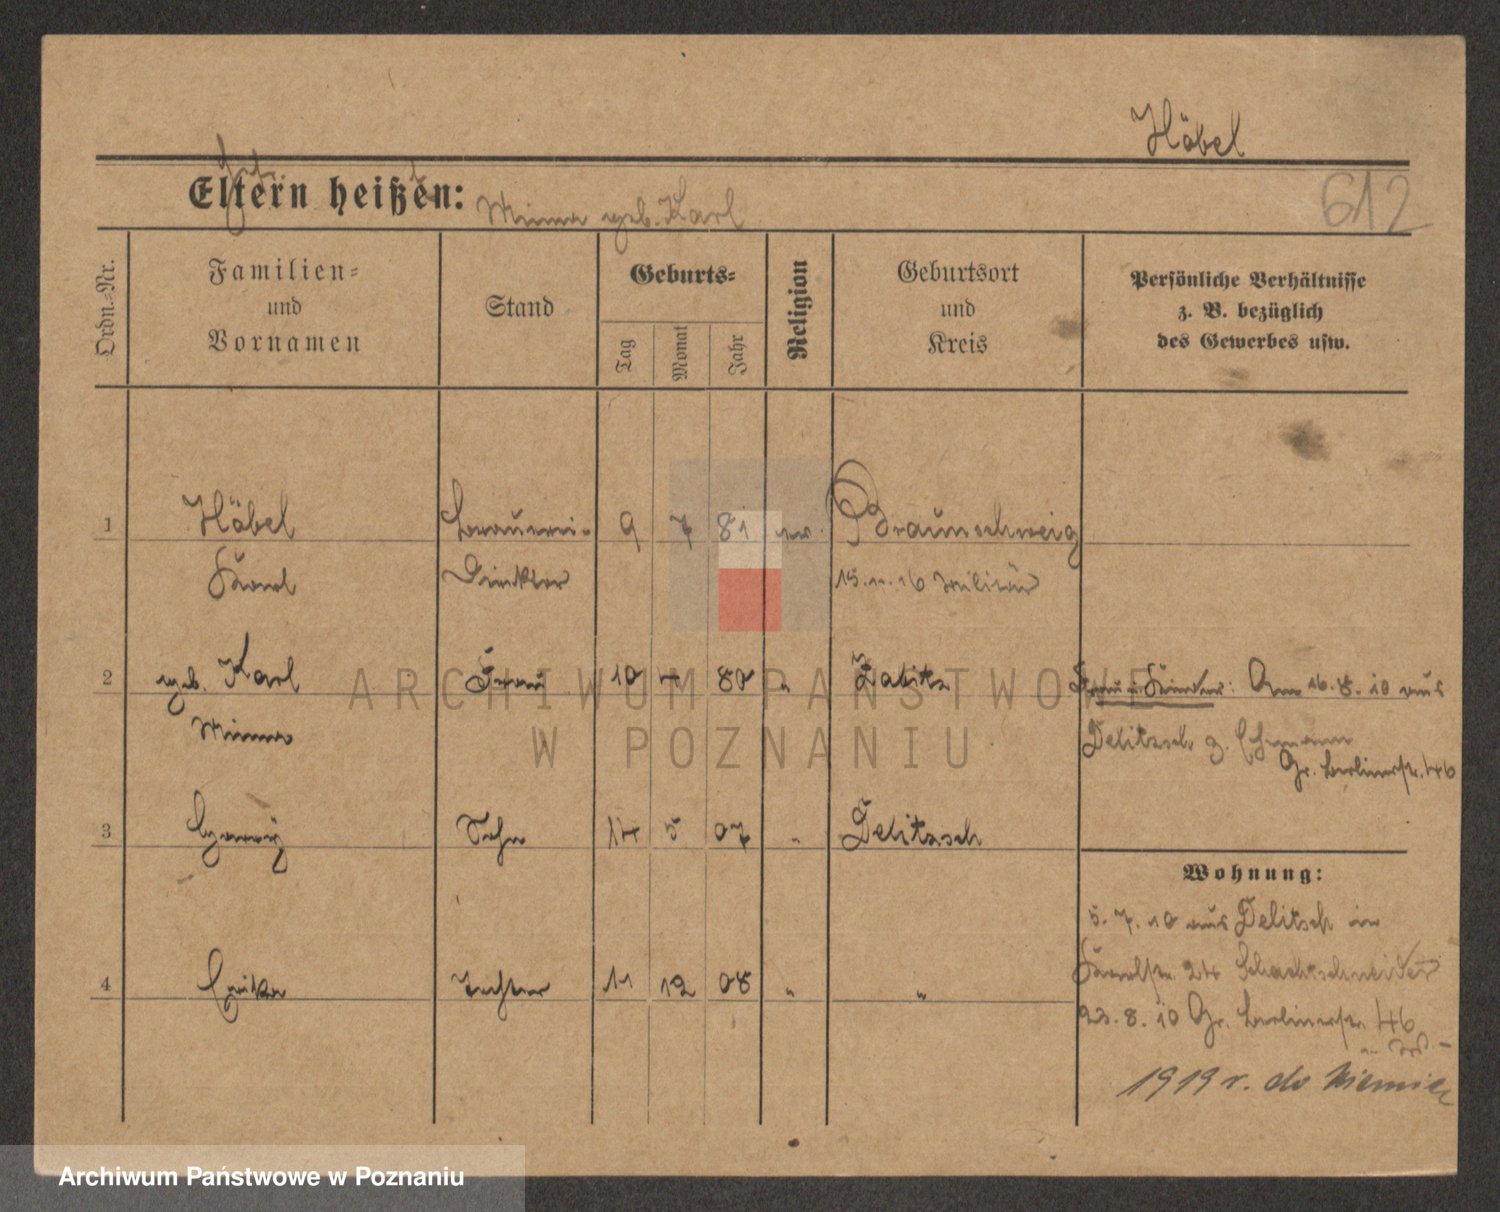 Höbel
Eltern heißen:
Minna geb. Karl
612
Ordn.=Nr.
Familien=
und
Vornamen
Stand
Geburts=
Tag
Monat
Jahr
Religion
Geburtsort
und
Kreis
Persönliche Verhältnisse
z. B. bezüglich
des Gewerbes usw.
1 Höbel Brauerei- 9 7 81 ev. Braunschweig
Karl Direktor 15.11.16 Militär
2 geb. Karl Frau 10 80 " Zabitz Frau u. Kinder: Am 16.8.10 aus
Minna Delitzsch z. Ehemann
Gr. Berlinerstr. 46
3 Sohn 14 5 07 " Delitzsch
Wohnung:
5.7.10 aus Delitzsch in
4 Erika Tochter 11 12 08 " "
24 Schachtschneider
23.8.10 Gr. Berlinerstr. 46
1919 r. do Niemiec
ARCHIWUM PAŃSTWOWE
W POZNANIU
Archiwum Państwowe w Poznaniu